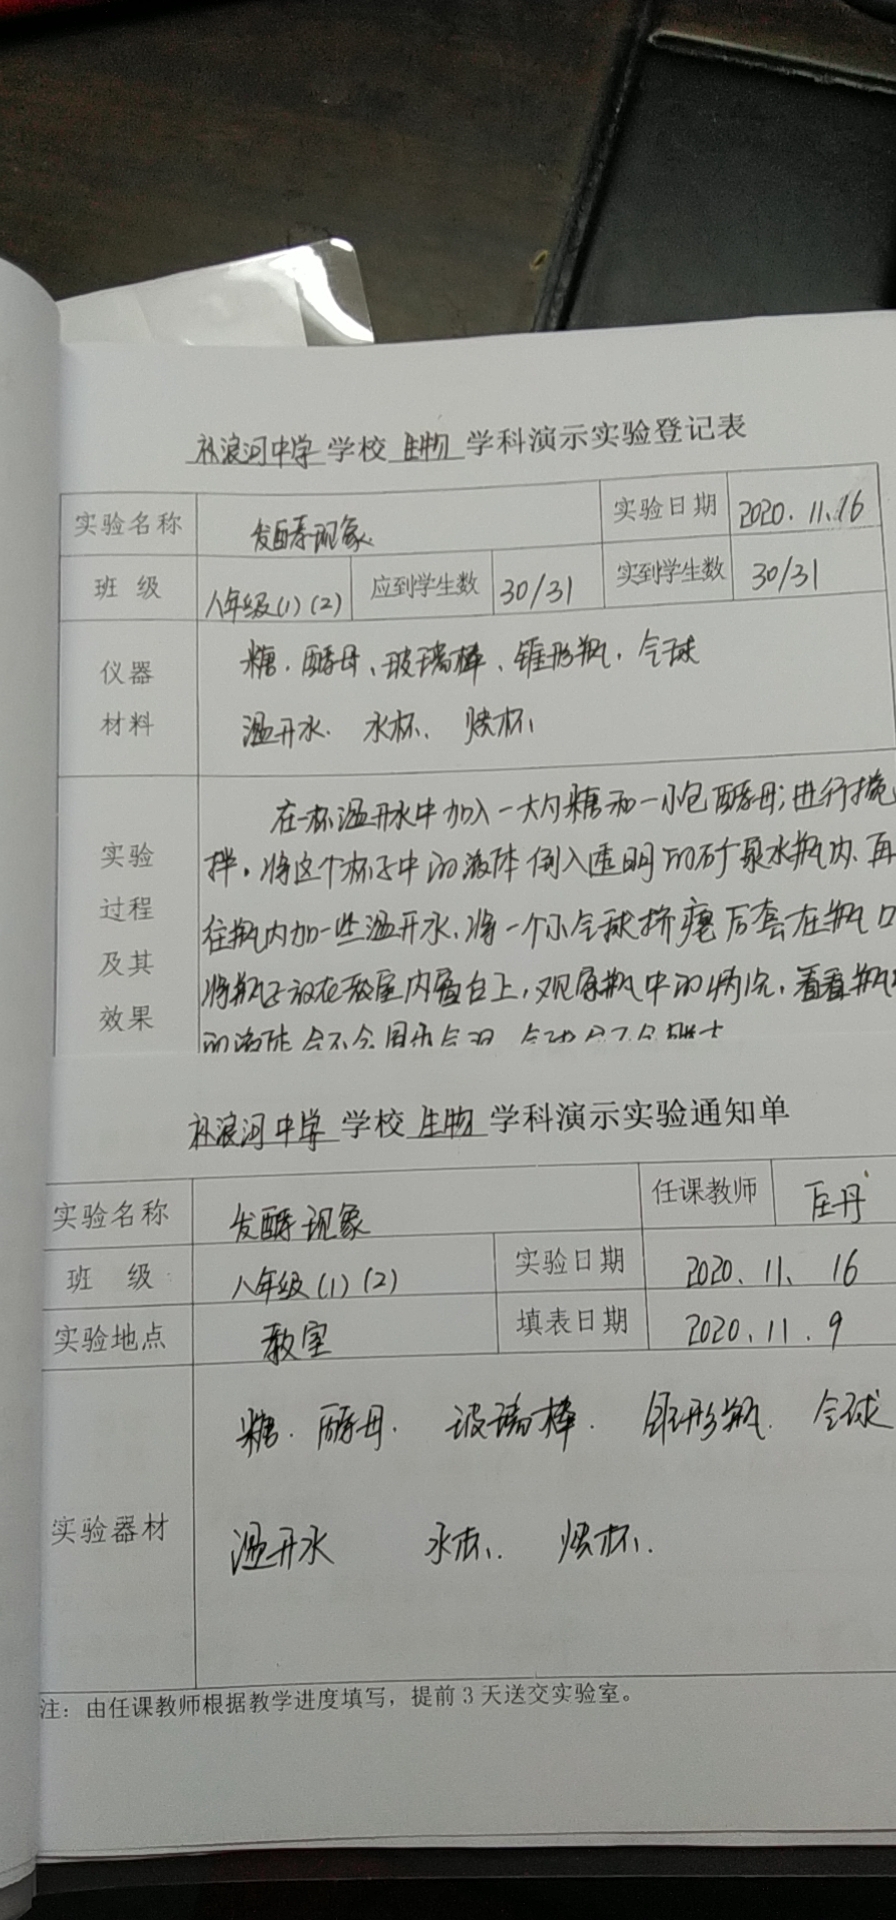 补浪河中学 学校 生物 学科演示实验登记表
实验名称 发酵现象 实验日期 2020.11.16
班 级 八年级(1)(2) 应到学生数 30/31 实到学生数 30/31
仪器材料 糖、酵母、玻璃棒、锥形瓶、气球
温开水、水杯、烧杯、
实验过程及其效果 在一杯温开水中加入一大勺糖和一小包酵母;进行搅
拌。将这个杯子中的液体倒入透明的矿泉水瓶内.再
往瓶内加一些温开水、将一个小气球挤瘪后套在瓶口
将瓶子放在教室内窗台上,观察瓶中的情况,看看瓶
的液体会不会冒出气泡
补浪河中学 学校 生物 学科演示实验通知单
实验名称 发酵现象 任课教师 丹
班 级 八年级(1)(2) 实验日期 2020、11、16
实验地点 教室 填表日期 2020.11.9
实验器材 糖、酵母、玻璃棒、锥形瓶、气球
温开水 水杯、烧杯.
注：由任课教师根据教学进度填写，提前3天送交实验室。